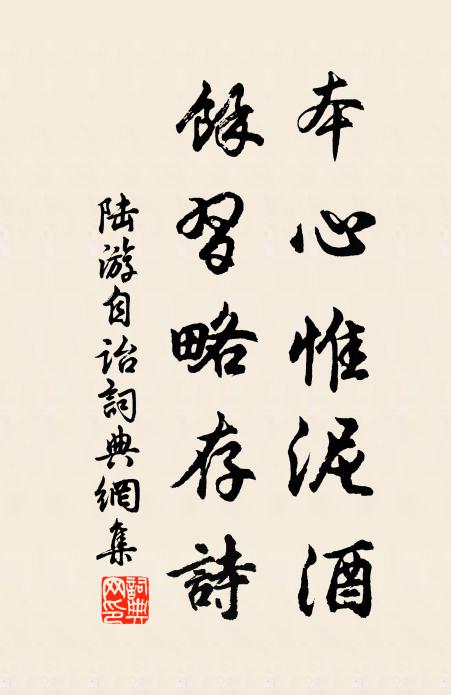 本心惟泥酒
餘習略存詩
陸游自詒詞典網集
詞典網印